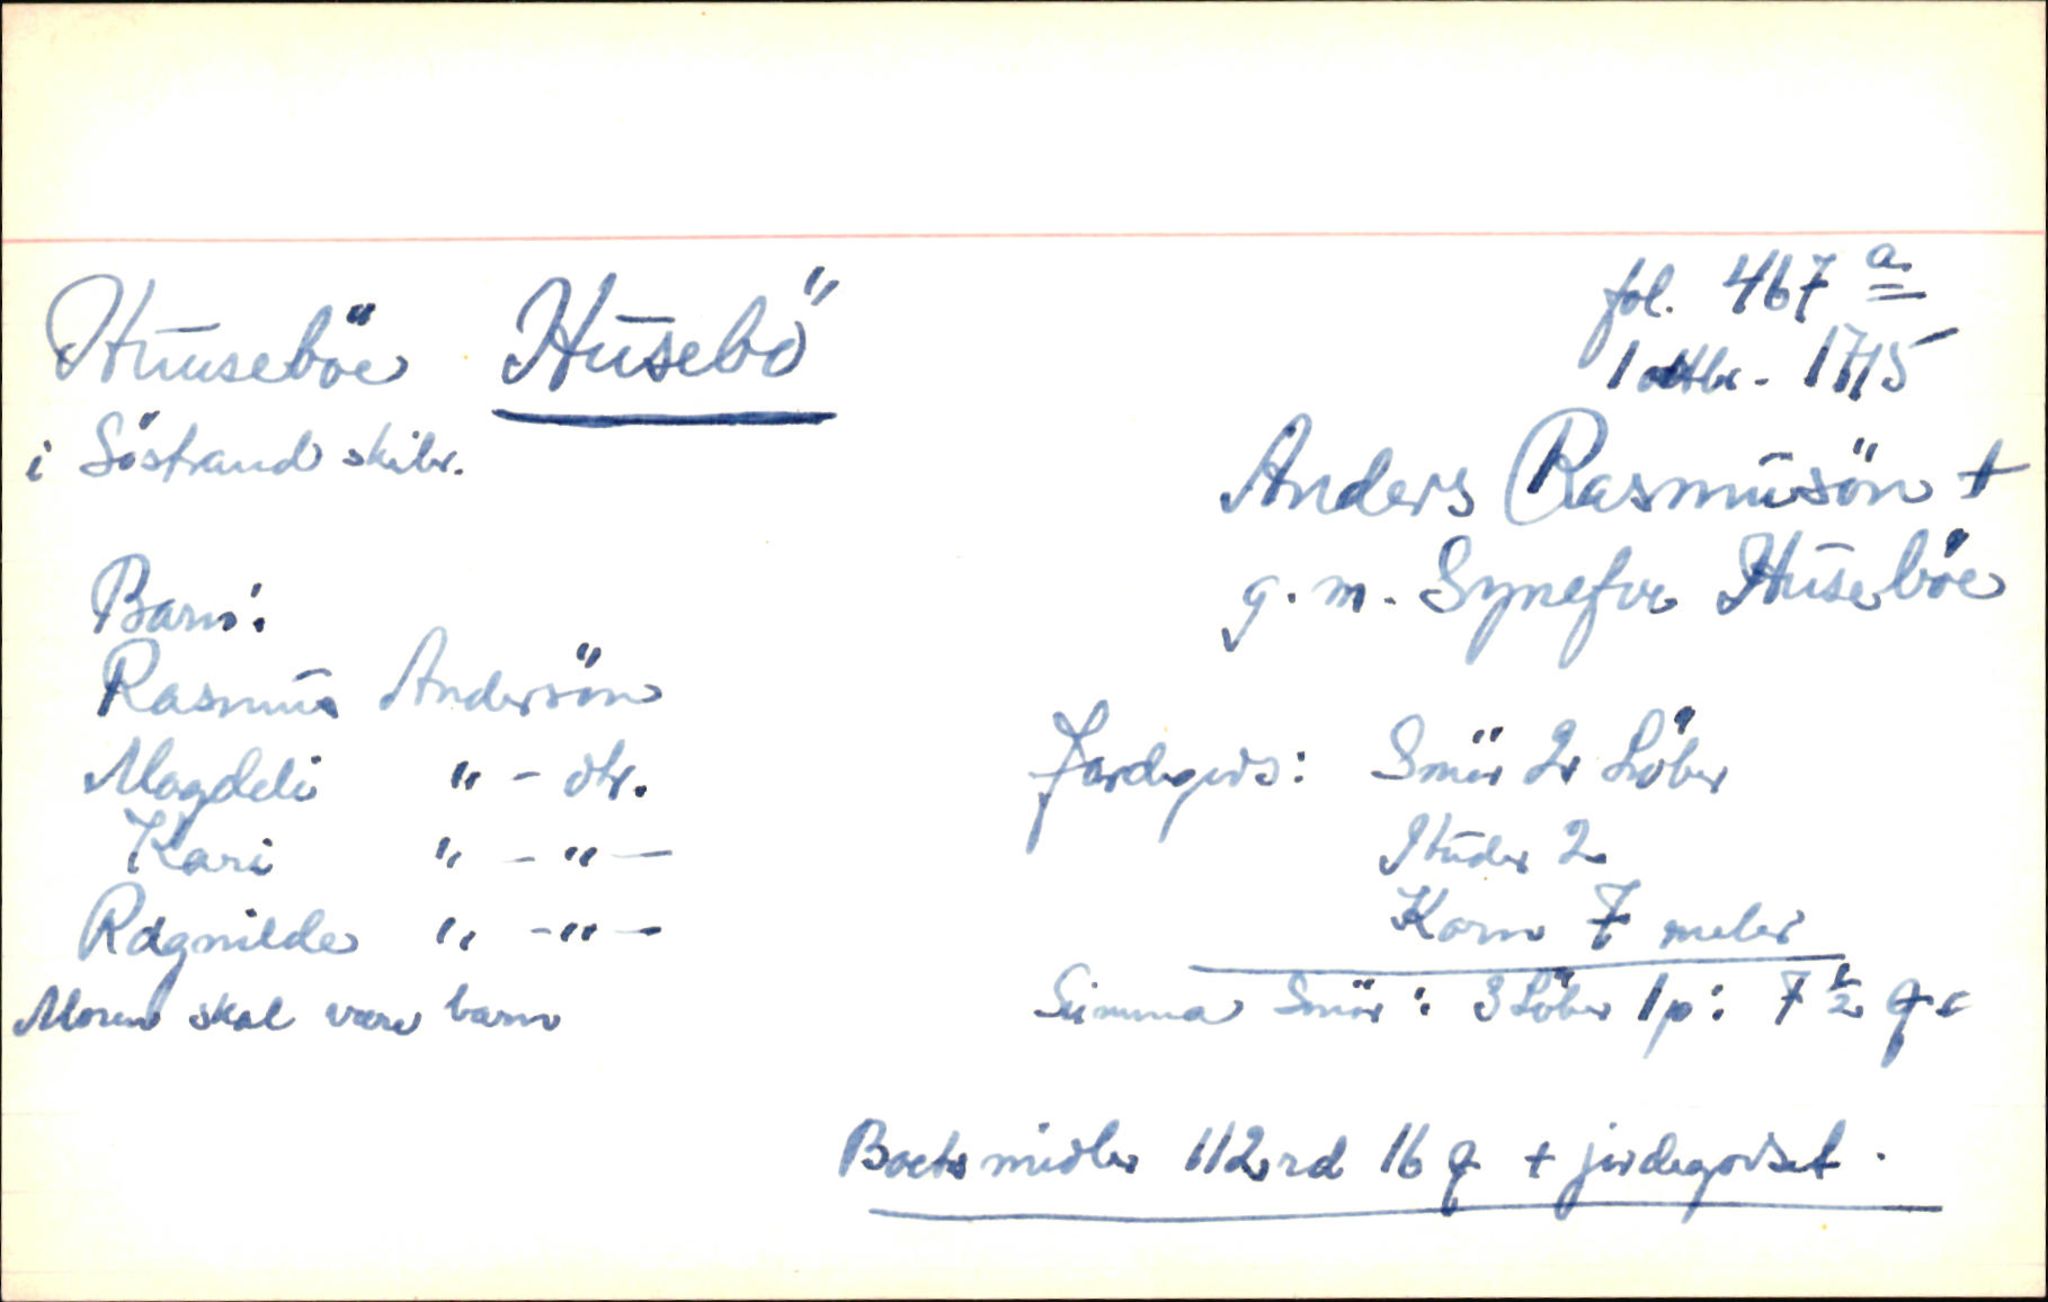 Huuseböe Husebö
fol. 467 a
1 oktbr. 1715
i Söstrand skibr.
Anders Rasmusön +
g. m. Synefve Huseböe
Barn:
Rasmus Andersön
Magdeli " - dtr.
Kari " - " -
Ragnilde " - " -
Moren skal være barn
Jordegods: Smör 2 Löber
Huder 2
Korn 7 meler
Summa Smör: 3 Löber 1 p: 7 ½
Boets midler 112 rd 16 q + jordegodset.